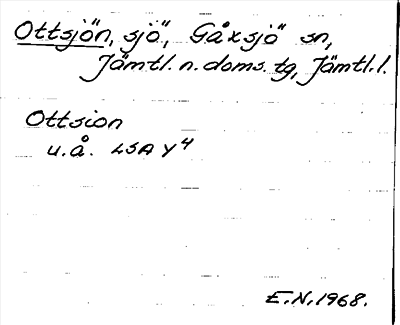 Ottsjön, sjö, Gåxsjö sn,
Jämtl. n. doms. tg, Jämtl. l.
Ottsion
u.å. LSA Y4
E.N. 1968.